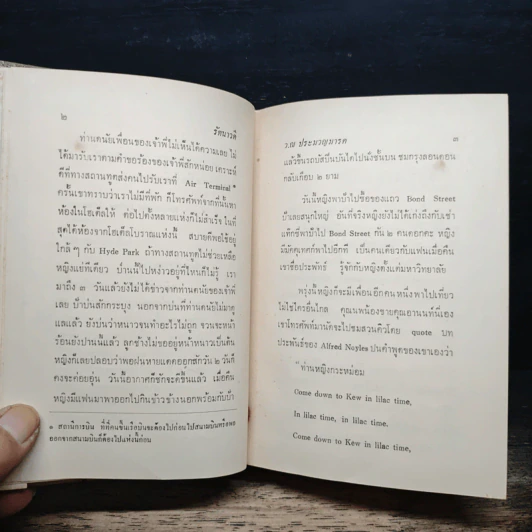 ๒
รัตนาวดี
ท่านดนัยเพื่อนของเจ้าพี่ไม่เห็นได้ความเลย ไม่
ได้มารับเราตามคำขอร้องของเจ้าพี่สักหน่อย เคราะห์
ดีที่ทางสถานทูตส่งคนไปรับที่ Air Terminal *
ครั้นเขาทราบว่าเราไม่มีที่พัก ก็โทรศัพท์จากที่นั่นหา
ห้องในโฮเต็ลให้ ต่อไปตั้งหลายแห่งก็ไม่สำเร็จ ในที่
สุดได้ห้องจากโฮเต็ลโบราณแห่งนี้ สบายดีพอใช้อยู่
ใกล้ ๆ กับ Hyde Park ถ้าทางสถานทูตไม่ช่วยเหลือ
หญิงแย่ทีเดียว ป่านนี้ไปเหง่าอยู่ที่ไหนก็ไม่รู้ เรา
มาถึง ๓ วันแล้วยังไม่ได้ข่าวจากท่านดนัยของเจ้าพี่
เลย ป้าบ่นสักกระบุง นอกจากบ่นที่ท่านดนัยไม่มาดู
แลแล้ว ยังบ่นว่าหนาวจนทำอะไรไม่ถูก จวนจะหน้า
ร้อนยังปานนี้แล้ว ลูกช้างไม่ขออยู่หน้าหนาวเป็นอัน
หญิงก็เลยปลอบว่าพอฝนหายแดดออกสัก ๒ วันก็
คงจะค่อยอุ่น วันนี้อากาศก็ชักจะดีขึ้นแล้ว เมื่อคืน
หญิงมีแฟนมาพาออกไปกินข้าวข้างนอกพร้อมกับป้า
* สถานีการบิน ที่ที่คนขึ้นเรือบินจะต้องไปก่อนไปสนามบินหรือพอ
ออกจากสนามบินก็ต้องไปแห่งนี้ก่อน
ว.ณ ประมวญมารค
๓
แล้วขึ้นรถบัสปีนบันไดไปนั่งชั้นบน ชมกรุงลอนดอน
กลับเกือบ ๒ ยาม
วันนี้หญิงพาป้าไปซื้อของแถว Bond Street
ป้าเลยสนุกใหญ่ อันที่จริงหญิงยังไม่ได้เก่งถึงกับเช่า
แท๊กซี่พาป้าไป Bond Street กัน ๒ คนดอกค่ะ หญิง
มีมัคคุเทศก์พาไปอีกที เป็นคนเดียวกับแฟนเมื่อคืน
เขาชื่อประพัทธ์ รู้จักกับหญิงตั้งแต่มหาวิทยาลัย
พรุ่งนี้หญิงก็จะมีเพื่อนอีกคนหนึ่งพาไปเที่ยว
ไม่ใช่ใครอื่นไกล คุณนพน้องชายคุณอานนท์นี่เอง
เขาโทรศัพท์มานัดจะไปชมสวนคิวโดย quote บท
ประพันธ์ของ Alfred Noyles ปนคำพูดของเขาเองว่า
"ท่านหญิงกระหม่อม
Come down to Kew in lilac time,
In lilac time, in lilac time,
Come down to Kew in lilac time,